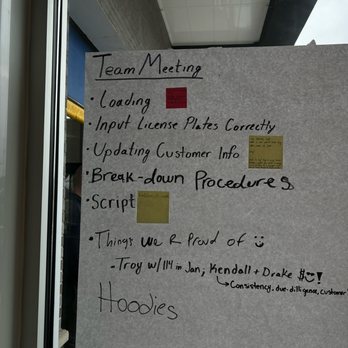 Team Meeting
· Loading
· Input License Plates Correctly
· Updating Customer Info
· Break-down Procedures
· Script
· Things we R Proud of
- Troy w/114 in Jan, Kendall + Drake $!
Consistency, due-dilligence, customer
Hoodies